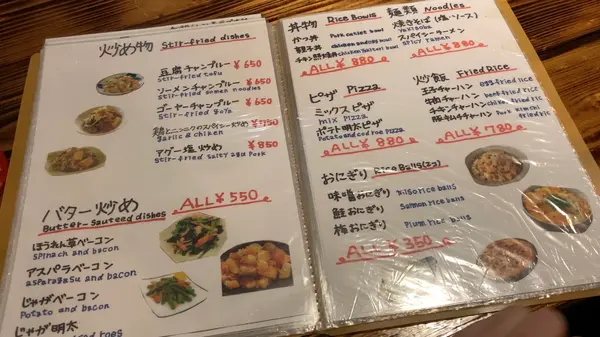 炒め物 Stir-fried dishes
豆腐チャンプルー ¥650
stir-fried tofu
ソーメンチャンプルー ¥650
stir-fried somen noodles
ゴーヤーチャンプルー ¥650
stir-fried goya
鶏とニンニクのスパイシー炒め ¥750
garlic & chicken
アグー塩炒め ¥850
stir-fried salty agu pork
バター炒め ALL ¥550
Butter-sauteed dishes
ほうれん草ベーコン
spinach and bacon
アスパラベーコン
asparagasu and bacon
じゃがベーコン
Potato and bacon
じゃが明太
丼物 Rice Bowls
カツ丼 Pork cutlet bowl
親子丼
ALL ¥880
麺類 Noodles
焼きそば(塩・ソース)
Yakisoba
スパイシーラーメン
spicy ramen
ALL ¥880
ピザ Pizza
ミックスピザ
mix Pizza
ポテト明太ピザ
Potato and cod roe pizza
ALL ¥880
炒飯 Fried Rice
玉子チャーハン
牛肉チャーハン beef fried rice
チキンチャーハン chicken fried rice
豚キムチチャーハン Pork kimchi fried rice
ALL ¥780
おにぎり Rice Balls(2コ)
味噌おにぎり Miso rice balls
鮭おにぎり Salmon rice balls
梅おにぎり Plum rice balls
ALL ¥350